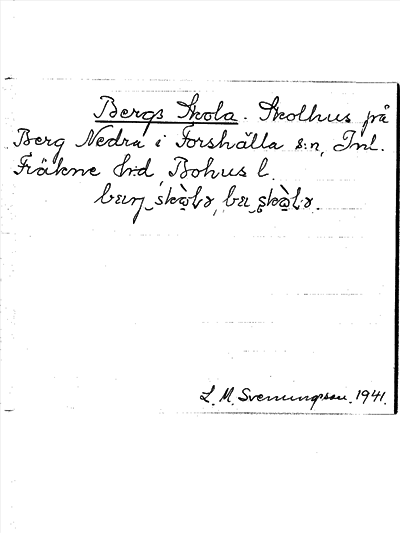 Bergs Skola. Skolhus på
Berg Nedra i Forshälla s:n, Inl.
Fräkne h:d, Bohus l.
L. M. Svenungsson. 1941.